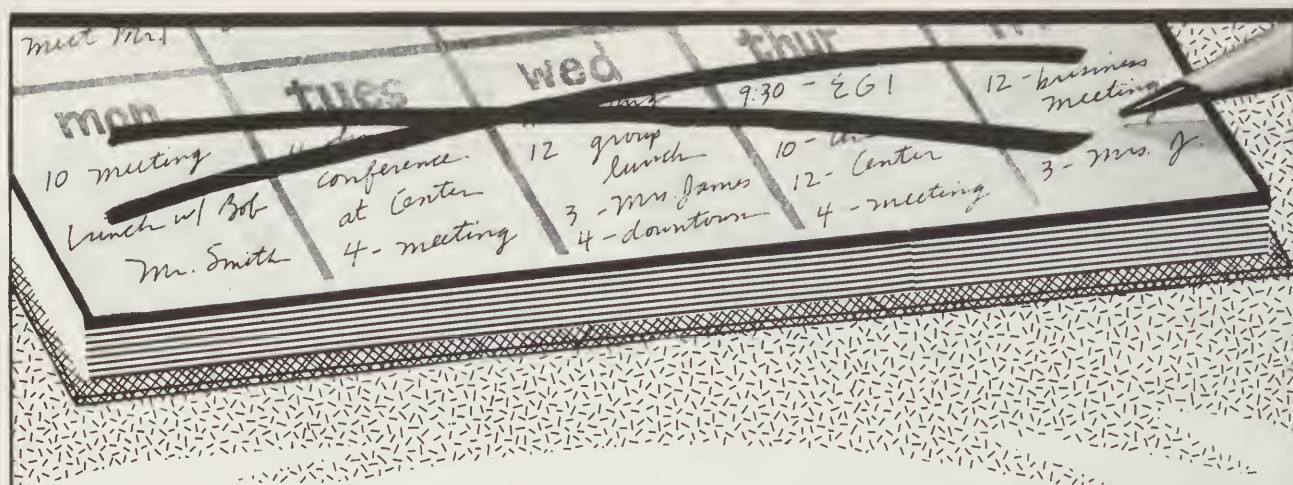 meet Mr.
mon
10 meeting
Lunch w/ Bob
Mr. Smith
tues
conference.
at Center
4 - meeting
wed
12 group
lunch
3 - Mrs. James
4 - downtown
thur
9:30 - EGI
10 -
12 - Center
4 - meeting
12 - business
meeting
3 - Mrs. J.